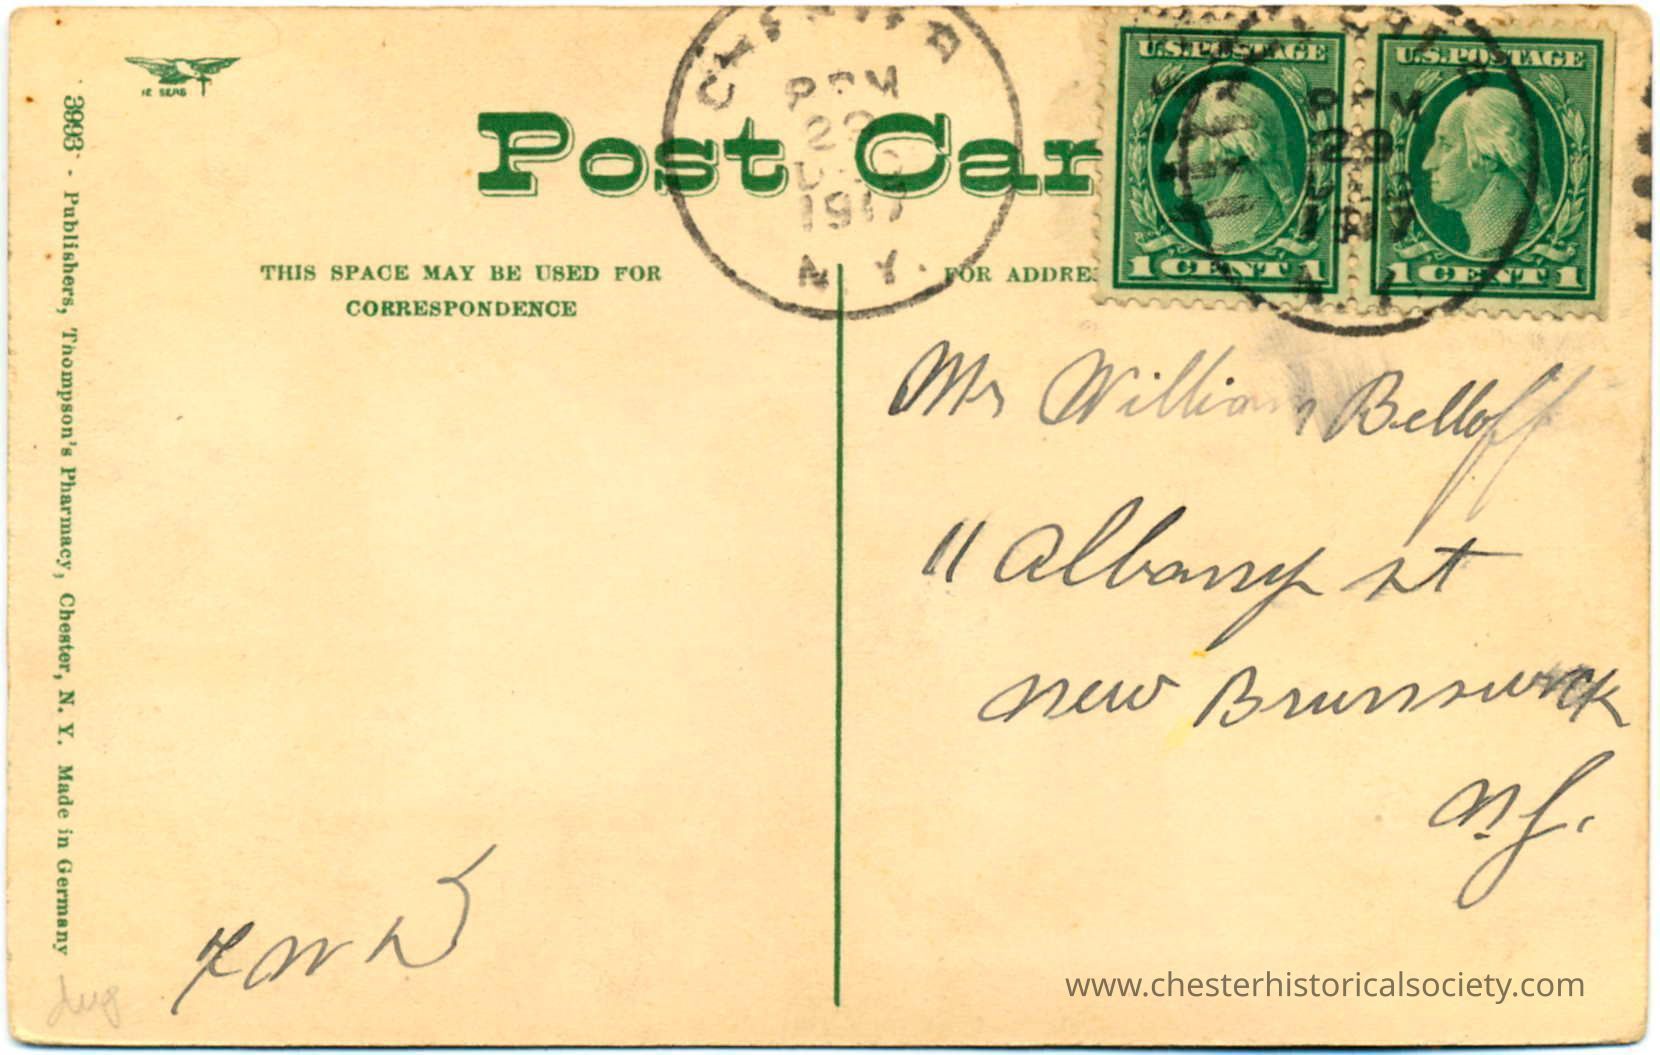 Post Car
THIS SPACE MAY BE USED FOR
CORRESPONDENCE
FOR ADDRE
3993 - Publishers, Thompson's Pharmacy, Chester, N. Y. Made in Germany
PM
29
1917
N Y.
U.S.POSTAGE
1 CENT 1
U.S.POSTAGE
1 CENT 1
PM
29
1917
Mr William Belloff
11 Albany st
New Brunswick
N.J.
www.chesterhistoricalsociety.com